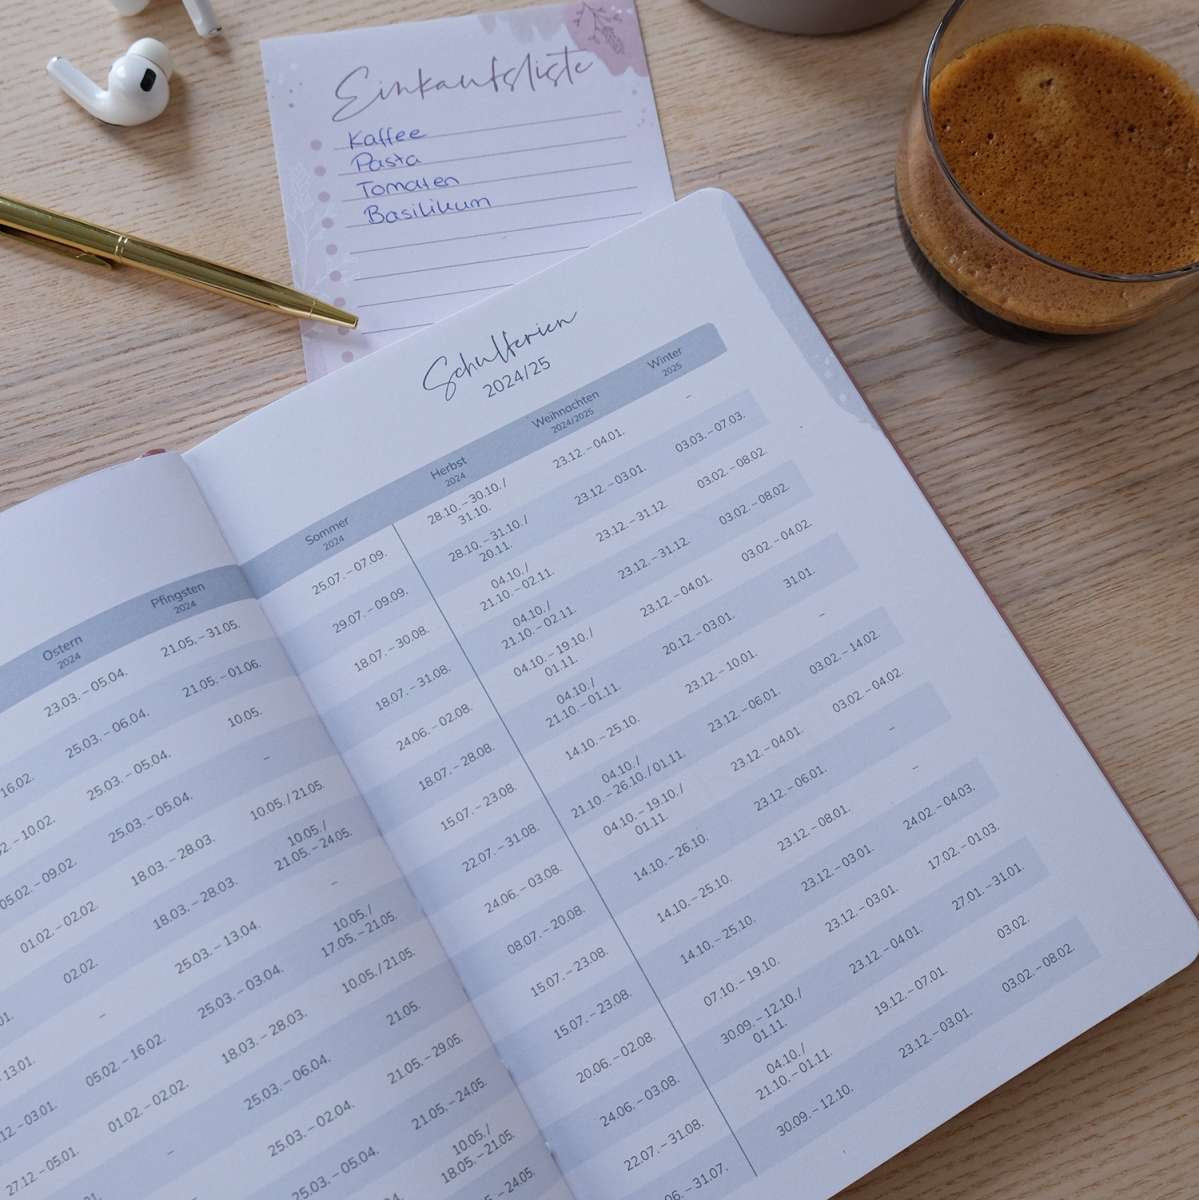 Einkaufsliste
Kaffee
Pasta
Tomaten
Basilikum
Schulferien
2024/25
Ostern
2024
Pfingsten
2024
23.03. – 05.04.
21.05. – 31.05.
16.02.
25.03. – 06.04.
21.05. – 01.06.
– 10.02.
25.03. – 05.04.
10.05.
05.02. – 09.02.
25.03. – 05.04.
–
01.02. – 02.02.
18.03. – 28.03.
10.05. / 21.05.
02.02.
18.03. – 28.03.
10.05. /
21.05. – 24.05.
–
25.03. – 13.04.
–
05.02. – 16.02.
25.03. – 03.04.
10.05. /
17.05. – 21.05.
01.02. – 02.02.
18.03. – 28.03.
10.05. / 21.05.
–
25.03. – 06.04.
21.05.
25.03. – 02.04.
21.05. – 29.05.
25.03. – 05.04.
21.05. – 24.05.
10.05. /
18.05. – 21.05.
– 24.05.
– 13.01.
– 03.01.
27.12. – 05.01.
Sommer
2024
Herbst
2024
Weihnachten
2024/2025
Winter
2025
25.07. – 07.09.
28.10. – 30.10. /
31.10.
23.12. – 04.01.
–
29.07. – 09.09.
28.10. – 31.10. /
20.11.
23.12. – 03.01.
03.03. – 07.03.
18.07. – 30.08.
04.10. /
21.10. – 02.11.
23.12. – 31.12.
03.02. – 08.02.
18.07. – 31.08.
04.10. /
21.10. – 02.11.
23.12. – 31.12.
03.02. – 08.02.
24.06. – 02.08.
04.10. – 19.10. /
01.11.
23.12. – 04.01.
03.02. – 04.02.
18.07. – 28.08.
04.10. /
21.10. – 01.11.
20.12. – 03.01.
31.01.
15.07. – 23.08.
14.10. – 25.10.
23.12. – 10.01.
–
22.07. – 31.08.
04.10. /
21.10. – 26.10. / 01.11.
23.12. – 06.01.
03.02. – 14.02.
24.06. – 03.08.
04.10. – 19.10. /
01.11.
23.12. – 04.01.
03.02. – 04.02.
08.07. – 20.08.
14.10. – 26.10.
23.12. – 06.01.
–
15.07. – 23.08.
14.10. – 25.10.
23.12. – 08.01.
–
15.07. – 23.08.
14.10. – 25.10.
23.12. – 03.01.
24.02. – 04.03.
20.06. – 02.08.
07.10. – 19.10.
23.12. – 03.01.
17.02. – 01.03.
24.06. – 03.08.
30.09. – 12.10. /
01.11.
23.12. – 04.01.
27.01. – 31.01.
22.07. – 31.08.
04.10. /
21.10. – 01.11.
19.12. – 07.01.
03.02.
06. – 31.07.
30.09. – 12.10.
23.12. – 03.01.
03.02. – 08.02.